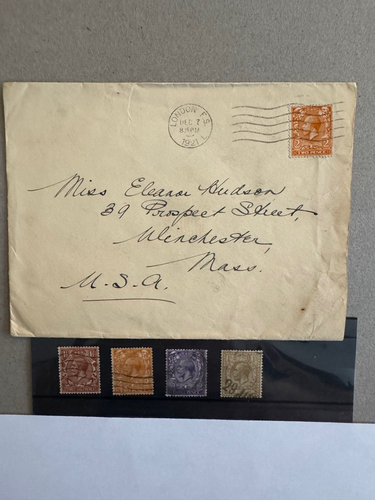 LONDON F.S.
DEC 7
1921
Miss Eleanor Hudson
39 Prospect Street,
Winchester,
Mass.
U.S.A.